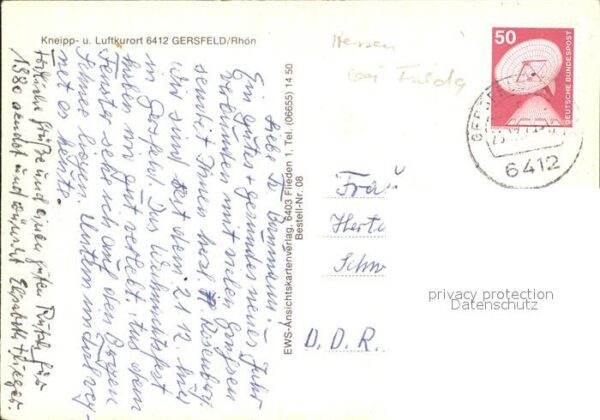 Kneipp- u. Luftkurort 6412 GERSFELD/Rhön
Liebe Fr. Baumann!
Ein gutes + gesundes neues Jahr
verbunden mit vielen Grüssen
sendet Ihnen herzl.
Wir sind seit dem 21.12. hier
in Gersfeld. Das Weihnachtsfest
haben wir gut verlebt, aus dem
Fenster sehe ich auf den Bergen
Schnee liegen. Unten
net es heute.
Herzliche Grüße und einen guten Rutsch für
1980 sendet und wünscht Elisabeth
EWS-Ansichtskartenverlag, 6403 Flieden 1, Tel. (06655) 14 50
Bestell-Nr. 08
Hessen
bei Fulda
50
DEUTSCHE BUNDESPOST
6412
Frau
Herta
Schw
D. D. R.
privacy protection
Datenschutz